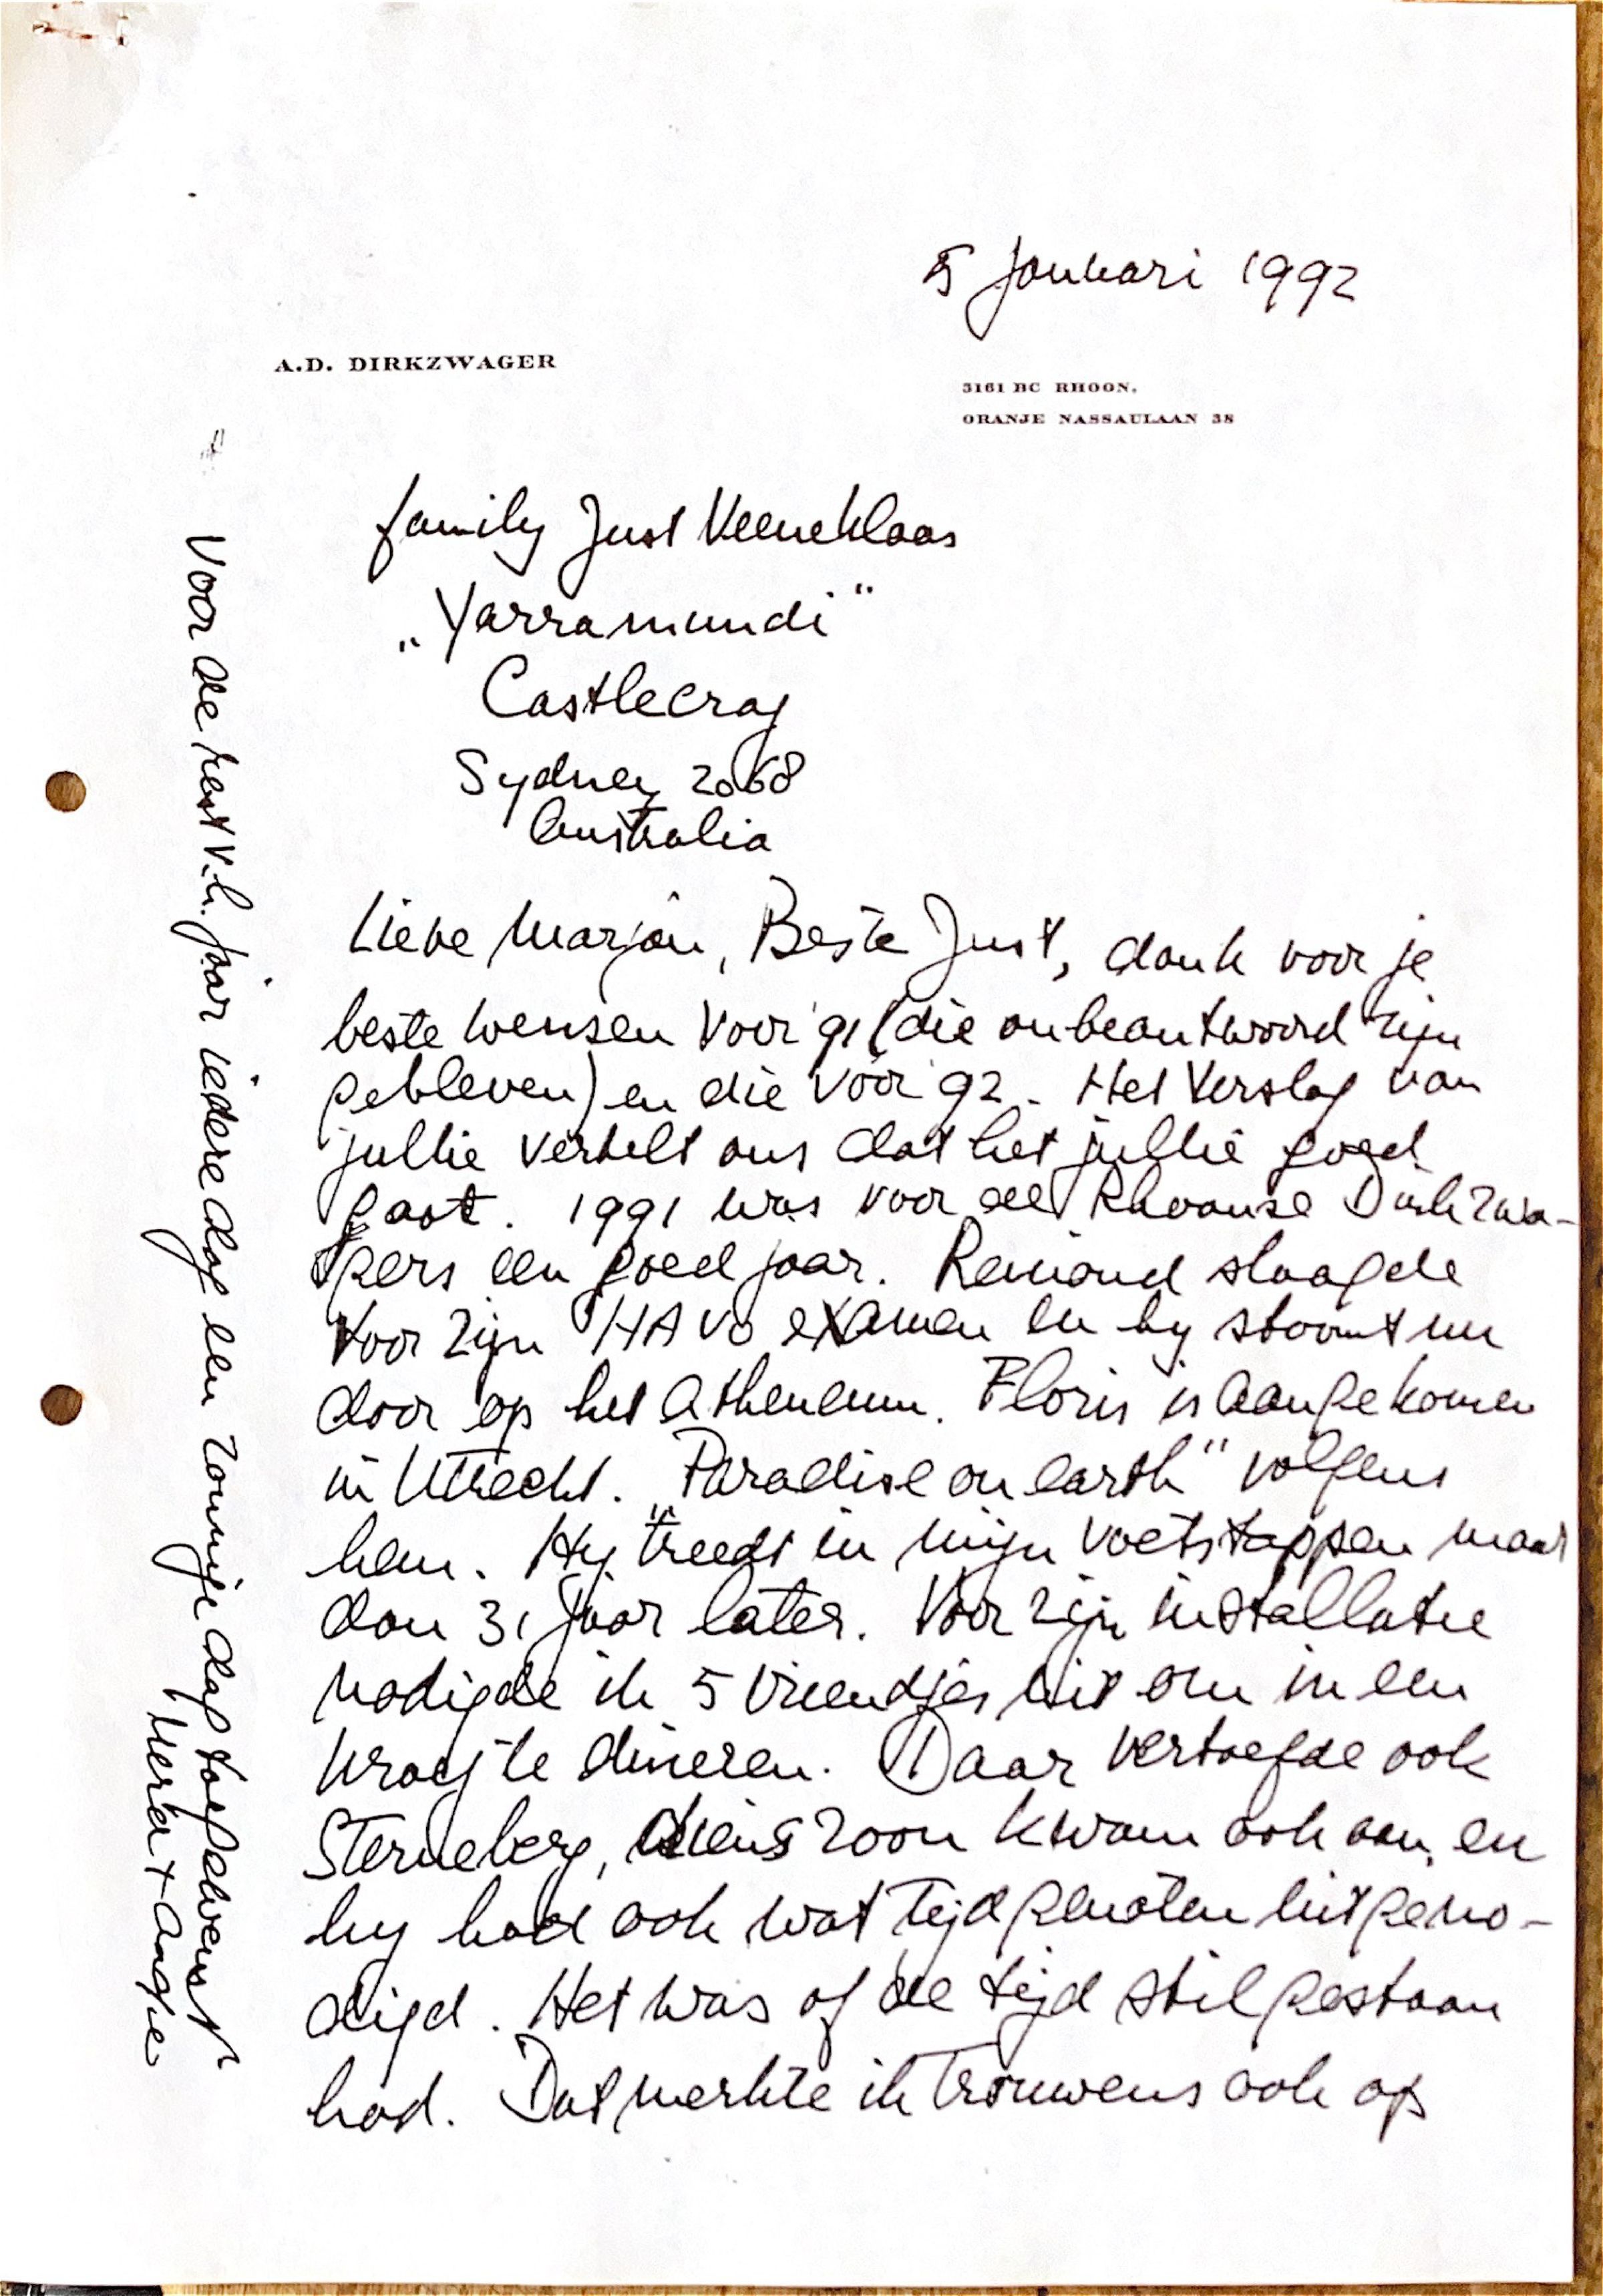 5 Januari 1992
A.D. DIRKZWAGER
3161 BC RHOON,
ORANJE NASSAULAAN 38
family Just Veeneklaas
„Yarramundi"
Castlecrag
Sydney 2068
Australia
Lieve Marjan, Beste Just, dank voor je
beste wensen voor '91 (die onbeantwoord zijn
gebleven) en die voor '92. Het verslag van
jullie vertelt ons dat het jullie goed
gaat. 1991 was voor de Rhoonse Dirkzwa-
gers een goed jaar. Remond slaagde
voor zijn HAVO examen en hij stoomt nu
door op het Atheneum. Floris is aangekomen
in Utrecht. „Paradise on earth" volgens
hem. Hij treedt in mijn voetstappen maar
dan 31 jaar later. Voor zijn installatie
nodigde ik 5 vriendjes uit om in een
kroegje dineren. Daar vertoefde ook
Sterneberg, diens zoon kwam ook aan, en
hij had ook wat tijdgenoten uitgeno-
digd. Het was of de tijd stil gestaan
had. Dat merkte ik trouwens ook op
Voor de rest v.h. jaar iedere dag een zonnige dag toegewenst
+ Aadje